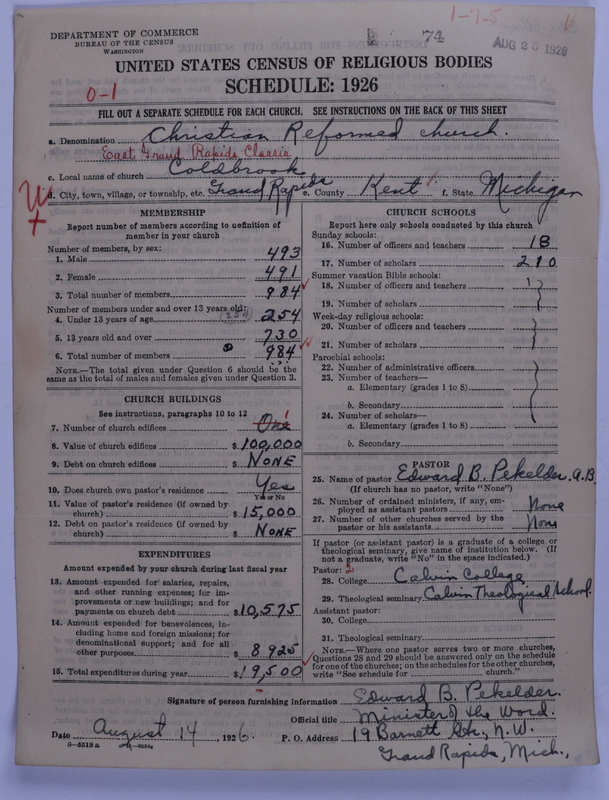 1-7-5
DEPARTMENT OF COMMERCE
BUREAU OF THE CENSUS
WASHINGTON
74
AUG 25 1926
UNITED STATES CENSUS OF RELIGIOUS BODIES
SCHEDULE: 1926
0-1
FILL OUT A SEPARATE SCHEDULE FOR EACH CHURCH. SEE INSTRUCTIONS ON THE BACK OF THIS SHEET
a. Denomination Christian Reformed church.
East Grand Rapids Classis
c. Local name of church Coldbrook
d. City, town, village, or township, etc. Grand Rapids e. County Kent f. State Michigan
MEMBERSHIP
Report number of members according to definition of
member in your church
Number of members, by sex:
1. Male 493
2. Female 491
3. Total number of members 984
Number of members under and over 13 years old:
4. Under 13 years of age (254) 254
5. 13 years old and over 730
6. Total number of members 984
NOTE.—The total given under Question 6 should be the
same as the total of males and females given under Question 3.
CHURCH BUILDINGS
See instructions, paragraphs 10 to 12
7. Number of church edifices One 1
8. Value of church edifices $ 100,000
9. Debt on church edifices $ NONE
10. Does church own pastor's residence Yes
Yes or No
11. Value of pastor's residence (if owned by
church) $ 15,000
12. Debt on pastor's residence (if owned by
church) $ NONE
EXPENDITURES
Amount expended by your church during last fiscal year
13. Amount expended for salaries, repairs,
and other running expenses; for im-
provements or new buildings; and for
payments on church debt $ 10,575
14. Amount expended for benevolences, in-
cluding home and foreign missions; for
denominational support; and for all
other purposes $ 8925
15. Total expenditures during year $ 19,500
CHURCH SCHOOLS
Report here only schools conducted by this church
Sunday schools:
16. Number of officers and teachers 18
17. Number of scholars 210
Summer vacation Bible schools:
18. Number of officers and teachers
19. Number of scholars
Week-day religious schools:
20. Number of officers and teachers
21. Number of scholars
Parochial schools:
22. Number of administrative officers
23. Number of teachers—
a. Elementary (grades 1 to 8)
b. Secondary
24. Number of scholars—
a. Elementary (grades 1 to 8)
b. Secondary
PASTOR
25. Name of pastor Edward B. Pekelder. A.B.
(If church has no pastor, write "None")
26. Number of ordained ministers, if any, em-
ployed as assistant pastors None
27. Number of other churches served by the
pastor or his assistants None
If pastor (or assistant pastor) is a graduate of a college or
theological seminary, give name of institution below. (If
not a graduate, write "No" in the space indicated.)
Pastor: 2
28. College Calvin College
29. Theological seminary Calvin Theological School.
Assistant pastor:
30. College
31. Theological seminary
NOTE.—Where one pastor serves two or more churches,
Questions 28 and 29 should be answered only on the schedule
for one of the churches; on the schedules for the other churches,
write "See schedule for church."
Signature of person furnishing information Edward B. Pekelder.
Official title Minister of the Word.
Date August 14, 1926. P. O. Address 19 Barnett Str., N.W.
Grand Rapids, Mich.,
8-5518 a